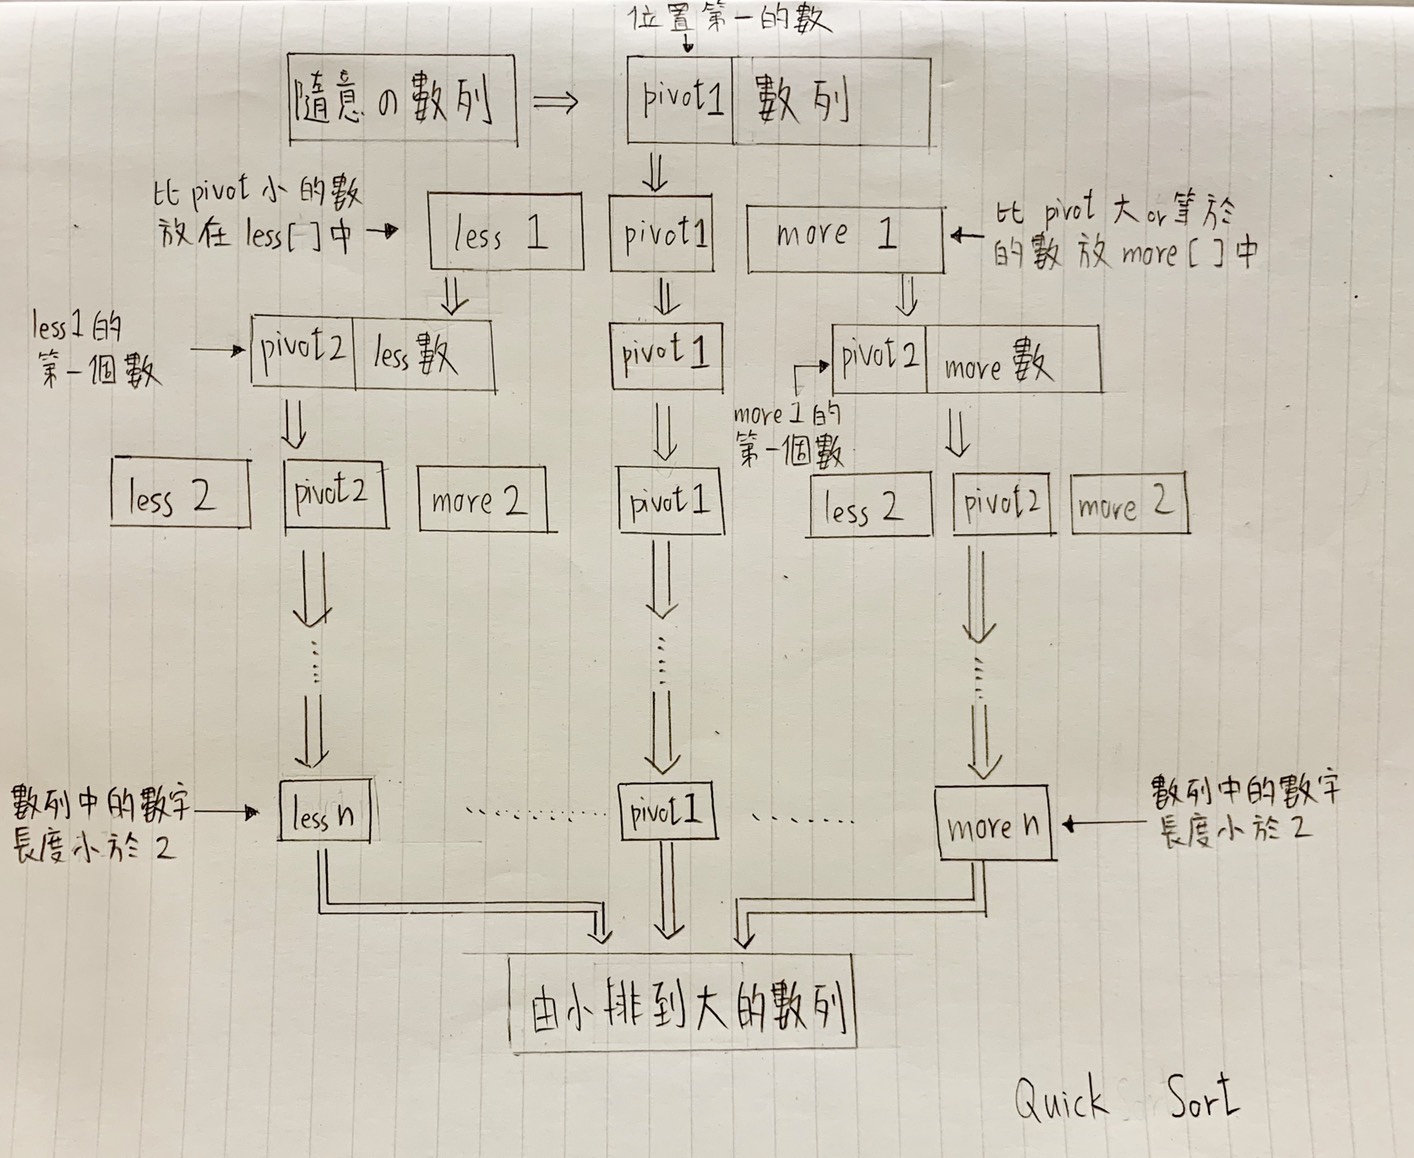 位置第一的數
隨意の數列
pivot1 數列
比 pivot 小的數
放在 less[ ]中
less 1
pivot1
more 1
比 pivot 大 or 等於
的數放 more[ ]中
less1的
第一個數
pivot2 less數
pivot1
pivot2 more數
more1的
第一個數
less 2
pivot2
more 2
pivot1
less 2
pivot2
more 2
數列中的數字
長度小於2
less n
pivot1
more n
數列中的數字
長度小於2
由小排到大的數列
Quick Sort